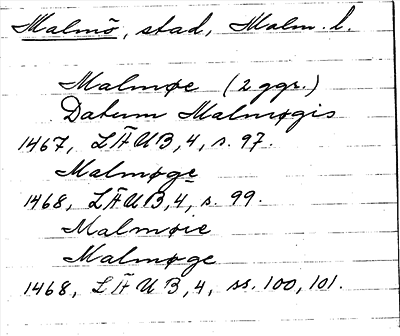 Malmö, stad, Malm. l.
Malmøe (2 ggr.)
Datum Malmøgis
1467, LÄUB, 4, s. 97.
Malmøge
1468, LÄUB, 4, s. 99.
Malmøie
Malmøge
1468, LÄUB, 4, ss. 100, 101.